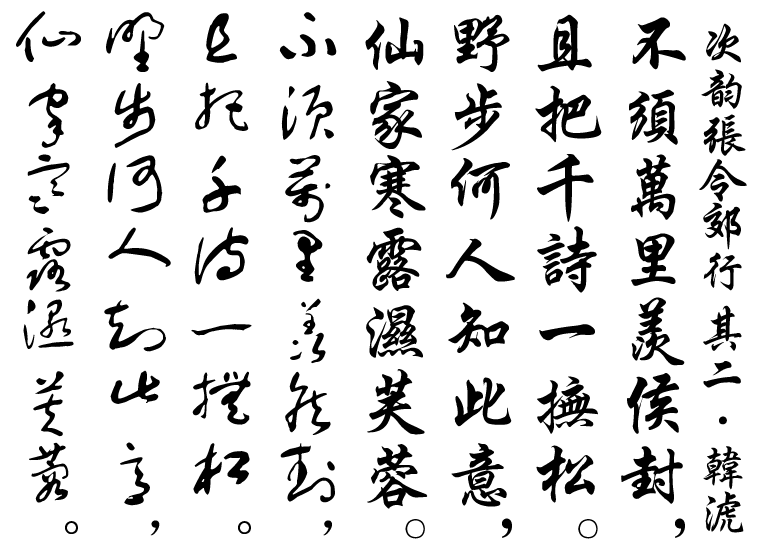 次韵張令郊行 其二·韓淲
不須萬里羨侯封，
且把千詩一撫松。
野步何人知此意，
仙家寒露濕芙蓉。
不須萬里羨侯封，
且把千詩一撫松。
野步何人知此意，
仙家寒露濕芙蓉。